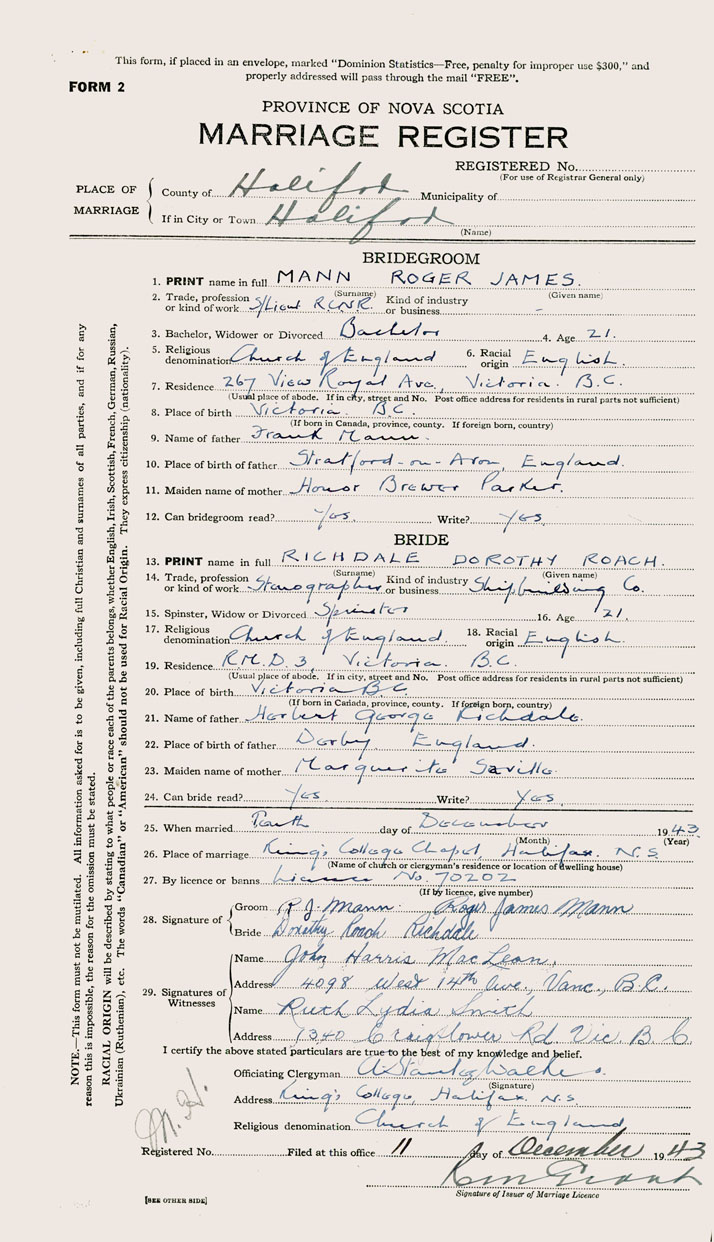 This form, if placed in an envelope, marked "Dominion Statistics—Free, penalty for improper use $300," and
properly addressed will pass through the mail "FREE".
FORM 2
PROVINCE OF NOVA SCOTIA
MARRIAGE REGISTER
REGISTERED No.
(For use of Registrar General only)
PLACE OF MARRIAGE
County of Halifax Municipality of
If in City or Town Halifax
(Name)
BRIDEGROOM
1. PRINT name in full MANN ROGER JAMES.
(Surname) (Given name)
2. Trade, profession or kind of work S/Lieut R.C.N.R. Kind of industry or business -
3. Bachelor, Widower or Divorced Bachelor 4. Age 21.
5. Religious denomination Church of England 6. Racial origin English.
7. Residence 267 View Royal Ave, Victoria. B.C.
(Usual place of abode. If in city, street and No. Post office address for residents in rural parts not sufficient)
8. Place of birth Victoria. B.C.
(If born in Canada, province, county. If foreign born, country)
9. Name of father Frank Mann.
10. Place of birth of father Stratford-on-Avon, England.
11. Maiden name of mother Honor Brewer Parker.
12. Can bridegroom read? Yes. Write? Yes
BRIDE
13. PRINT name in full RICHDALE DOROTHY ROACH.
(Surname) (Given name)
14. Trade, profession or kind of work Stenographer Kind of industry or business Shipbuilding Co.
15. Spinster, Widow or Divorced Spinster 16. Age 21.
17. Religious denomination Church of England. 18. Racial origin English.
19. Residence R.M.D. 3, Victoria. B.C.
(Usual place of abode. If in city, street and No. Post office address for residents in rural parts not sufficient)
20. Place of birth Victoria B.C.
(If born in Canada, province, county. If foreign born, country)
21. Name of father Herbert George Richdale.
22. Place of birth of father Derby England.
23. Maiden name of mother Marguerite Saville.
24. Can bride read? Yes. Write? Yes
25. When married Tenth day of December 1943
(Month) (Year)
26. Place of marriage King's College Chapel, Halifax. N.S.
(Name of church or clergyman's residence or location of dwelling house)
27. By licence or banns Licence No. 70202
(If by licence, give number)
28. Signature of
Groom R J. Mann. Roger James Mann
Bride Dorothy Roach Richdale
29. Signatures of Witnesses
Name John Harris MacLean.
Address 4098 West 14th Ave., Vanc., B.C.
Name Ruth Lydia Smith
Address 1340 Craigflower Rd Vic B.C.
I certify the above stated particulars are true to the best of my knowledge and belief.
Officiating Clergyman
(Signature)
Address King's College, Halifax. N.S.
Religious denomination Church of England
Registered No. Filed at this office 11 day of December 1943
Grant
Signature of Issuer of Marriage Licence
[SEE OTHER SIDE]
NOTE.—This form must not be mutilated. All information asked for is to be given, including full Christian and surnames of all parties, and if for any
reason this is impossible, the reason for the omission must be stated.
RACIAL ORIGIN will be described by stating to what people or race each of the parents belongs, whether English, Irish, Scottish, French, German, Russian,
Ukrainian (Ruthenian), etc. The words "Canadian" or "American" should not be used for Racial Origin. They express citizenship (nationality).